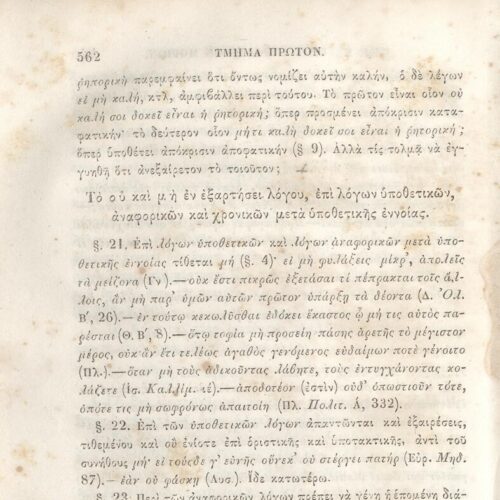 562 ΤΜΗΜΑ ΠΡΩΤΟΝ.
ῥητορικὴ παρεμφαίνει ὅτι ὄντως νομίζει αὐτὴν καλήν, ὁ δὲ λέγων
εἰ μὴ καλή, κτλ, ἀμφιβάλλει περὶ τούτου. Τὸ πρῶτον εἶναι οἷον οὐ
καλή σοι δοκεῖ εἶναι ἡ ῥητορική; ὅπερ προσμένει ἀπόκρισιν κατα-
φατικήν· τὸ δεύτερον οἷον μή τι καλὴ δοκεῖ σοι εἶναι ἡ ῥητορική;
ὅπερ ὑποθέτει ἀπόκρισιν ἀποφατικὴν (§ 9). Ἀλλὰ τίς τολμᾷ νὰ ἐγ-
γυηθῇ ὅτι ἀνεξαίρετον τὸ τοιοῦτον;
Τὸ οὐ καὶ μὴ ἐν ἐξαρτήσει λόγου, ἐπὶ λόγων ὑποθετικῶν,
ἀναφορικῶν καὶ χρονικῶν μετὰ ὑποθετικῆς ἐννοίας.
§. 21. Ἐπὶ λόγων ὑποθετικῶν καὶ λόγων ἀναφορικῶν μετὰ ὑπο-
θετικῆς ἐννοίας τίθεται μή (§. 4)· εἰ μὴ φυλάξεις μίκρ', ἀπολεῖς
τὰ μείζονα (Γν).—οὐκ ἔστι πικρῶς ἐξετάσαι τί πέπρακται τοῖς ἄλ-
λοις, ἂν μὴ παρ' ὑμῶν αὐτῶν πρῶτον ὑπάρξῃ τὰ δέοντα (Δ. Ὀλ.
Β', 26).—ἐν τούτῳ κεκωλῦσθαι ἐδόκει ἕκαστος ᾧ μή τις αὐτὸς πα-
ρέσται (Θ. Β', 8).—ὅτῳ τοφία μὴ προσείη πάσης ἀρετῆς τὸ μέγιστον
μέρος, οὐκ ἂν ἔτι τελέως ἀγαθὸς γενόμενος εὐδαίμων ποτὲ γένοιτο
(Πλ.).—ὅταν μὴ τοὺς ἀδικοῦντας λάβητε, τοὺς ἐντυγχάνοντας κο-
λάζετε (Ἰσ. Καλλίμ. ιέ).—ἀποδοτέον (ἐστὶν) οὐδ' ὁπωστιοῦν τότε,
ὁπότε τις μὴ σωφρόνως ἀπαιτοίη (Πλ. Πολιτ. Α, 332).
§. 22. Ἐπὶ τῶν ὑποθετικῶν λόγων ἀπαντῶνται καὶ ἐξαιρέσεις,
τιθεμένου καὶ οὐ ἐνίοτε ἐπὶ ὁριστικῆς καὶ ὑποτακτικῆς, ἀντὶ τοῦ
συνήθους μή· εἰ τούσδε γ' εὐνῆς οὕνεκ' οὐ στέργει πατήρ (Εὐρ. Μηδ.
87).—ἐὰν οὐ φάσκῃ (Λυσ.). Ἴδε κατωτέρω.
§. 23. Περὶ τῶν ἀναφορικῶν λόγων πρέπει νὰ γένῃ ἑπομένη διά-